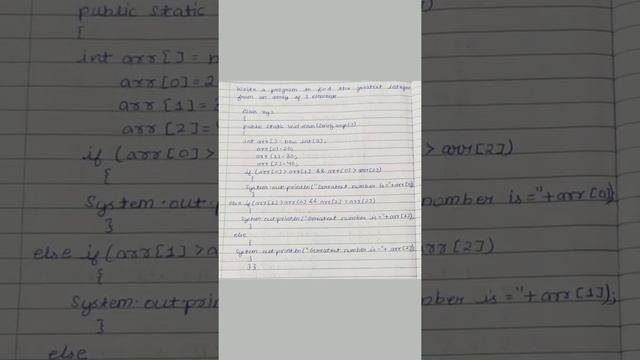 Write a program to find the greatest integer
from an array of 3 elements
class xyz
{
public static void main(String args[])
{
int arr[]=new int[3];
arr[0]=20;
arr[1]=30;
arr[2]=40;
if (arr[0]>arr[1] && arr[0]>arr[2])
{
System.out.println("Greatest number is ="+arr[0]);
}
else if(arr[1]>arr[0] && arr[1]>arr[2])
{
System.out.println("Greatest number is ="+arr[1]);
}
else
{
System.out.println("Greatest number is ="+arr[2]);
}
}}
public static
{
int arr[]=
arr[0]=2
arr[1]=
arr[2]=
if (arr[0]>
> arr[2])
System.out.
number is ="+arr[0]);
}
else if(arr[1]>a
arr[2])
{
System.out.prin
mber is ="+arr[1]);
}
else